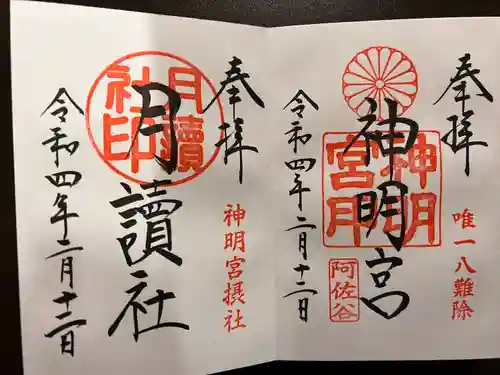 奉拝
唯一八難除
神明宮
神明宮印
阿佐谷
令和四年二月十二日
奉拝
神明宮摂社
月讀社
月讀社印
令和四年二月十二日